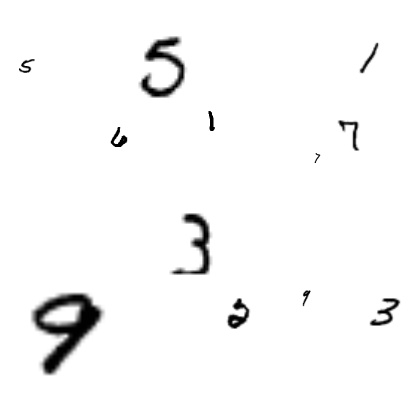 5 5 1
6 1 7
7
3
9 2 9 3